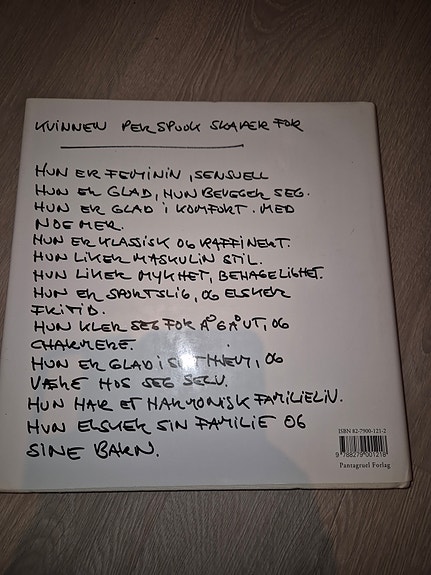 KVINNEN PER SPOOK SKAPER FOR
HUN ER FEMININ, SENSUELL
HUN ER GLAD, HUN BEVEGER SEG.
HUN ER GLAD I KOMFORT. MED
NOE MER.
HUN ER KLASSISK OG RAFFINERT.
HUN LIKER MASKULIN STIL.
HUN LIKER MYKHET, BEHAGELIGHET.
HUN ER SPORTSLIG, OG ELSKER
FRITID.
HUN KLER SEG FOR Å GÅ UT, OG
CHARMERE.
HUN ER GLAD I SITT HJEM, OG
VÆRE HOS SEG SELV.
HUN HAR ET HARMONISK FAMILIELIV.
HUN ELSKER SIN FAMILIE OG
SINE BARN.
ISBN 82-7900-121-2
9 788279 001218
Pantagruel Forlag